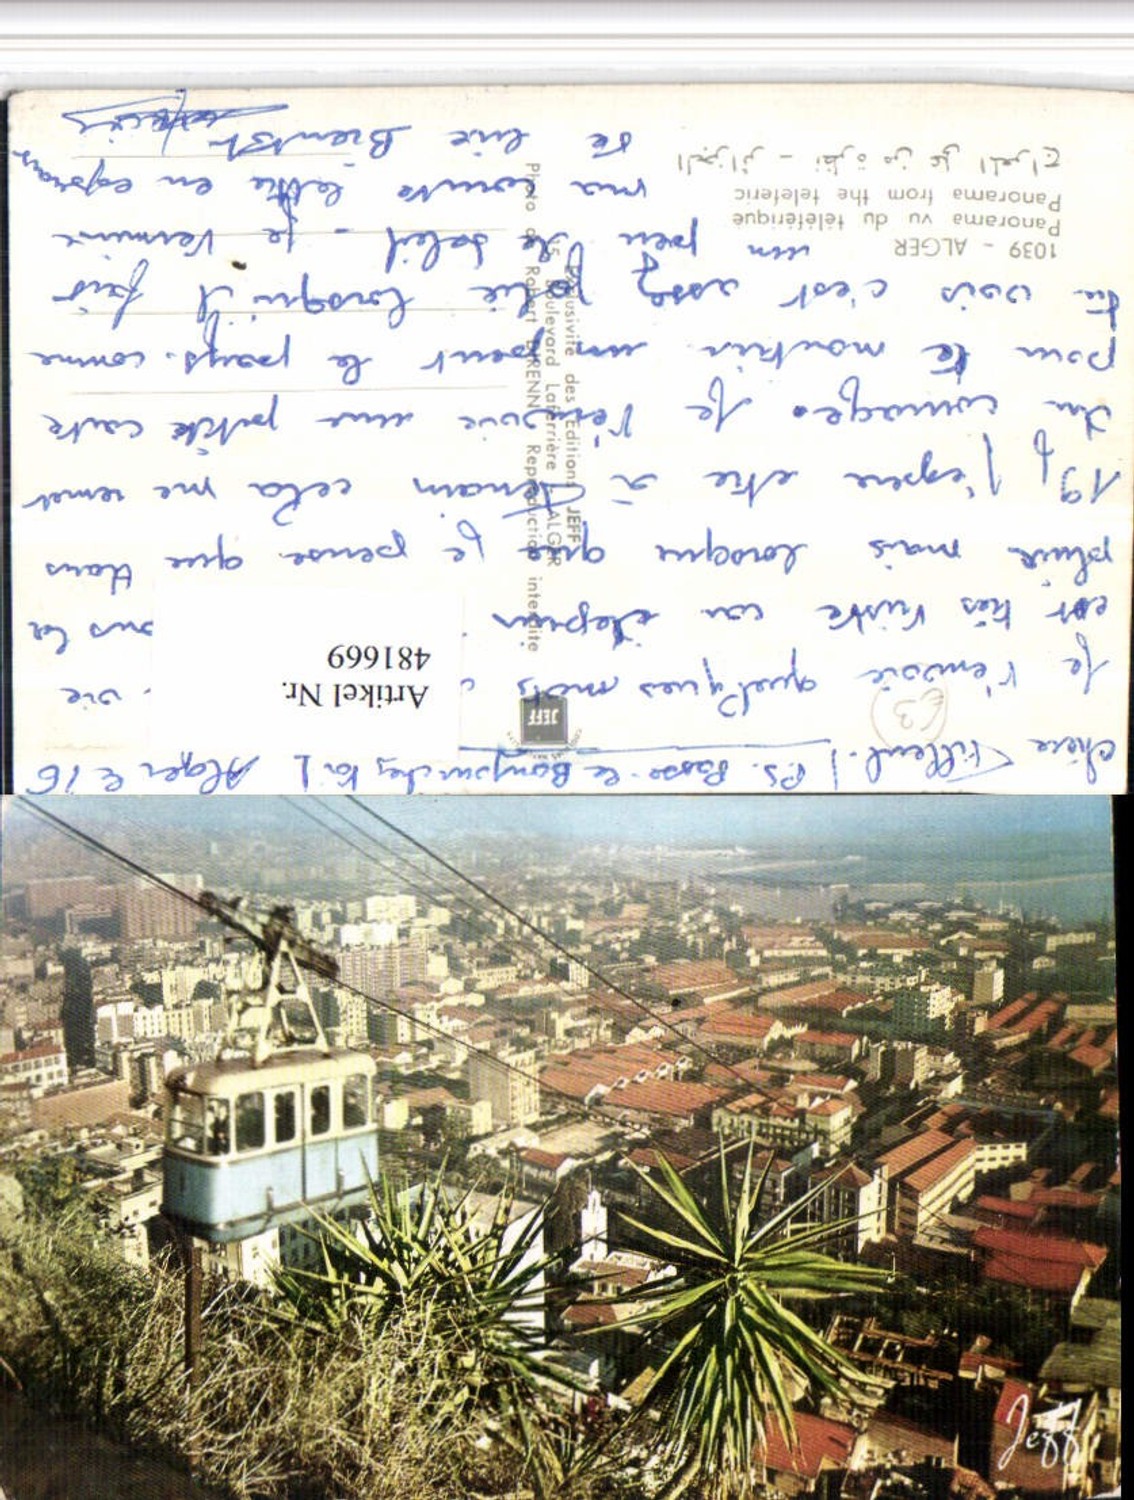 Chère Filleul. / P.S. Passe le Bonjour chez toi / Alger le 16
Je t'envoie quelques mots vie
est très triste on depuis sous la
pluie mais lorsque que je pense que dans
19 j j'espère être à cela me remet
du courage. Je t'envoie une petite carte
pour te montrer un peut le pays. comme
tu vois c'est assez jolie lorsqu'il fait
un peu de soleil - Je termine
ma courte lettre en espérant
te lire Bientôt
1039 - ALGER
Panorama vu du téléférique
Panorama from the teleferic
Exclusivité des Editions JEFF
15, Boulevard Laferrière ALGER
Photo de Robert Reproduction interdite
JEFF
63
Artikel Nr.
481669
Jeff